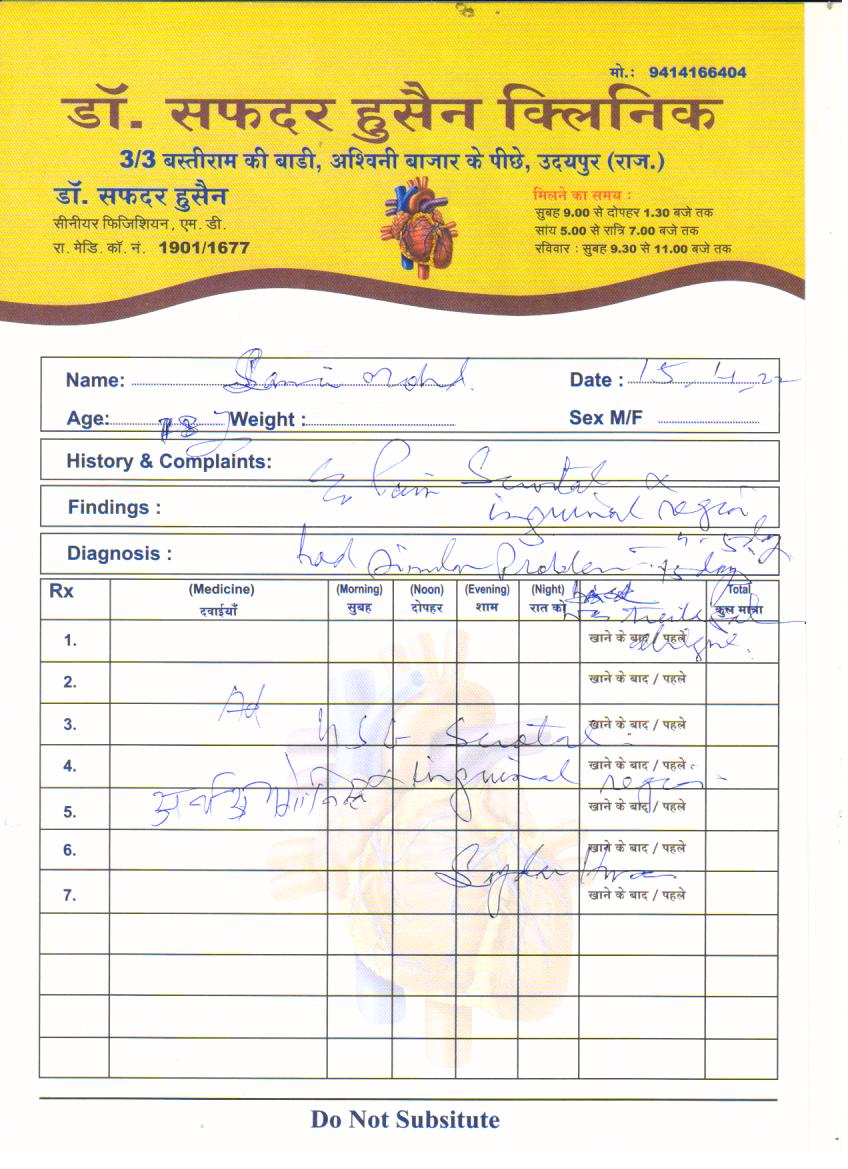 मो.: 9414166404
डॉ. सफदर हुसैन क्लिनिक
3/3 बस्तीराम की बाडी, अश्विनी बाजार के पीछे, उदयपुर (राज.)
डॉ. सफदर हुसैन
सीनीयर फिजिशियन, एम. डी.
रा. मेडि. कॉ. नं. 1901/1677
मिलने का समय :
सुबह 9.00 से दोपहर 1.30 बजे तक
सांय 5.00 से रात्रि 7.00 बजे तक
रविवार : सुबह 9.30 से 11.00 बजे तक
Name: Mohd. Date : 15.4.22
Age: 18 Weight : Sex M/F
History & Complaints: Pain Scrotal &
Findings : inguinal region
4-5 day
Diagnosis : had Similar Problem 15 day
Rx (Medicine) (Morning) (Noon) (Evening) (Night) Total
दवाईयाँ सुबह दोपहर शाम रात को कुल मात्रा
1. खाने के बाद / पहले
2. खाने के बाद / पहले
Ad
3. USG Scrotal खाने के बाद / पहले
4. & inguinal region खाने के बाद / पहले
5. खाने के बाद / पहले
6. खाने के बाद / पहले
7. खाने के बाद / पहले
Do Not Subsitute